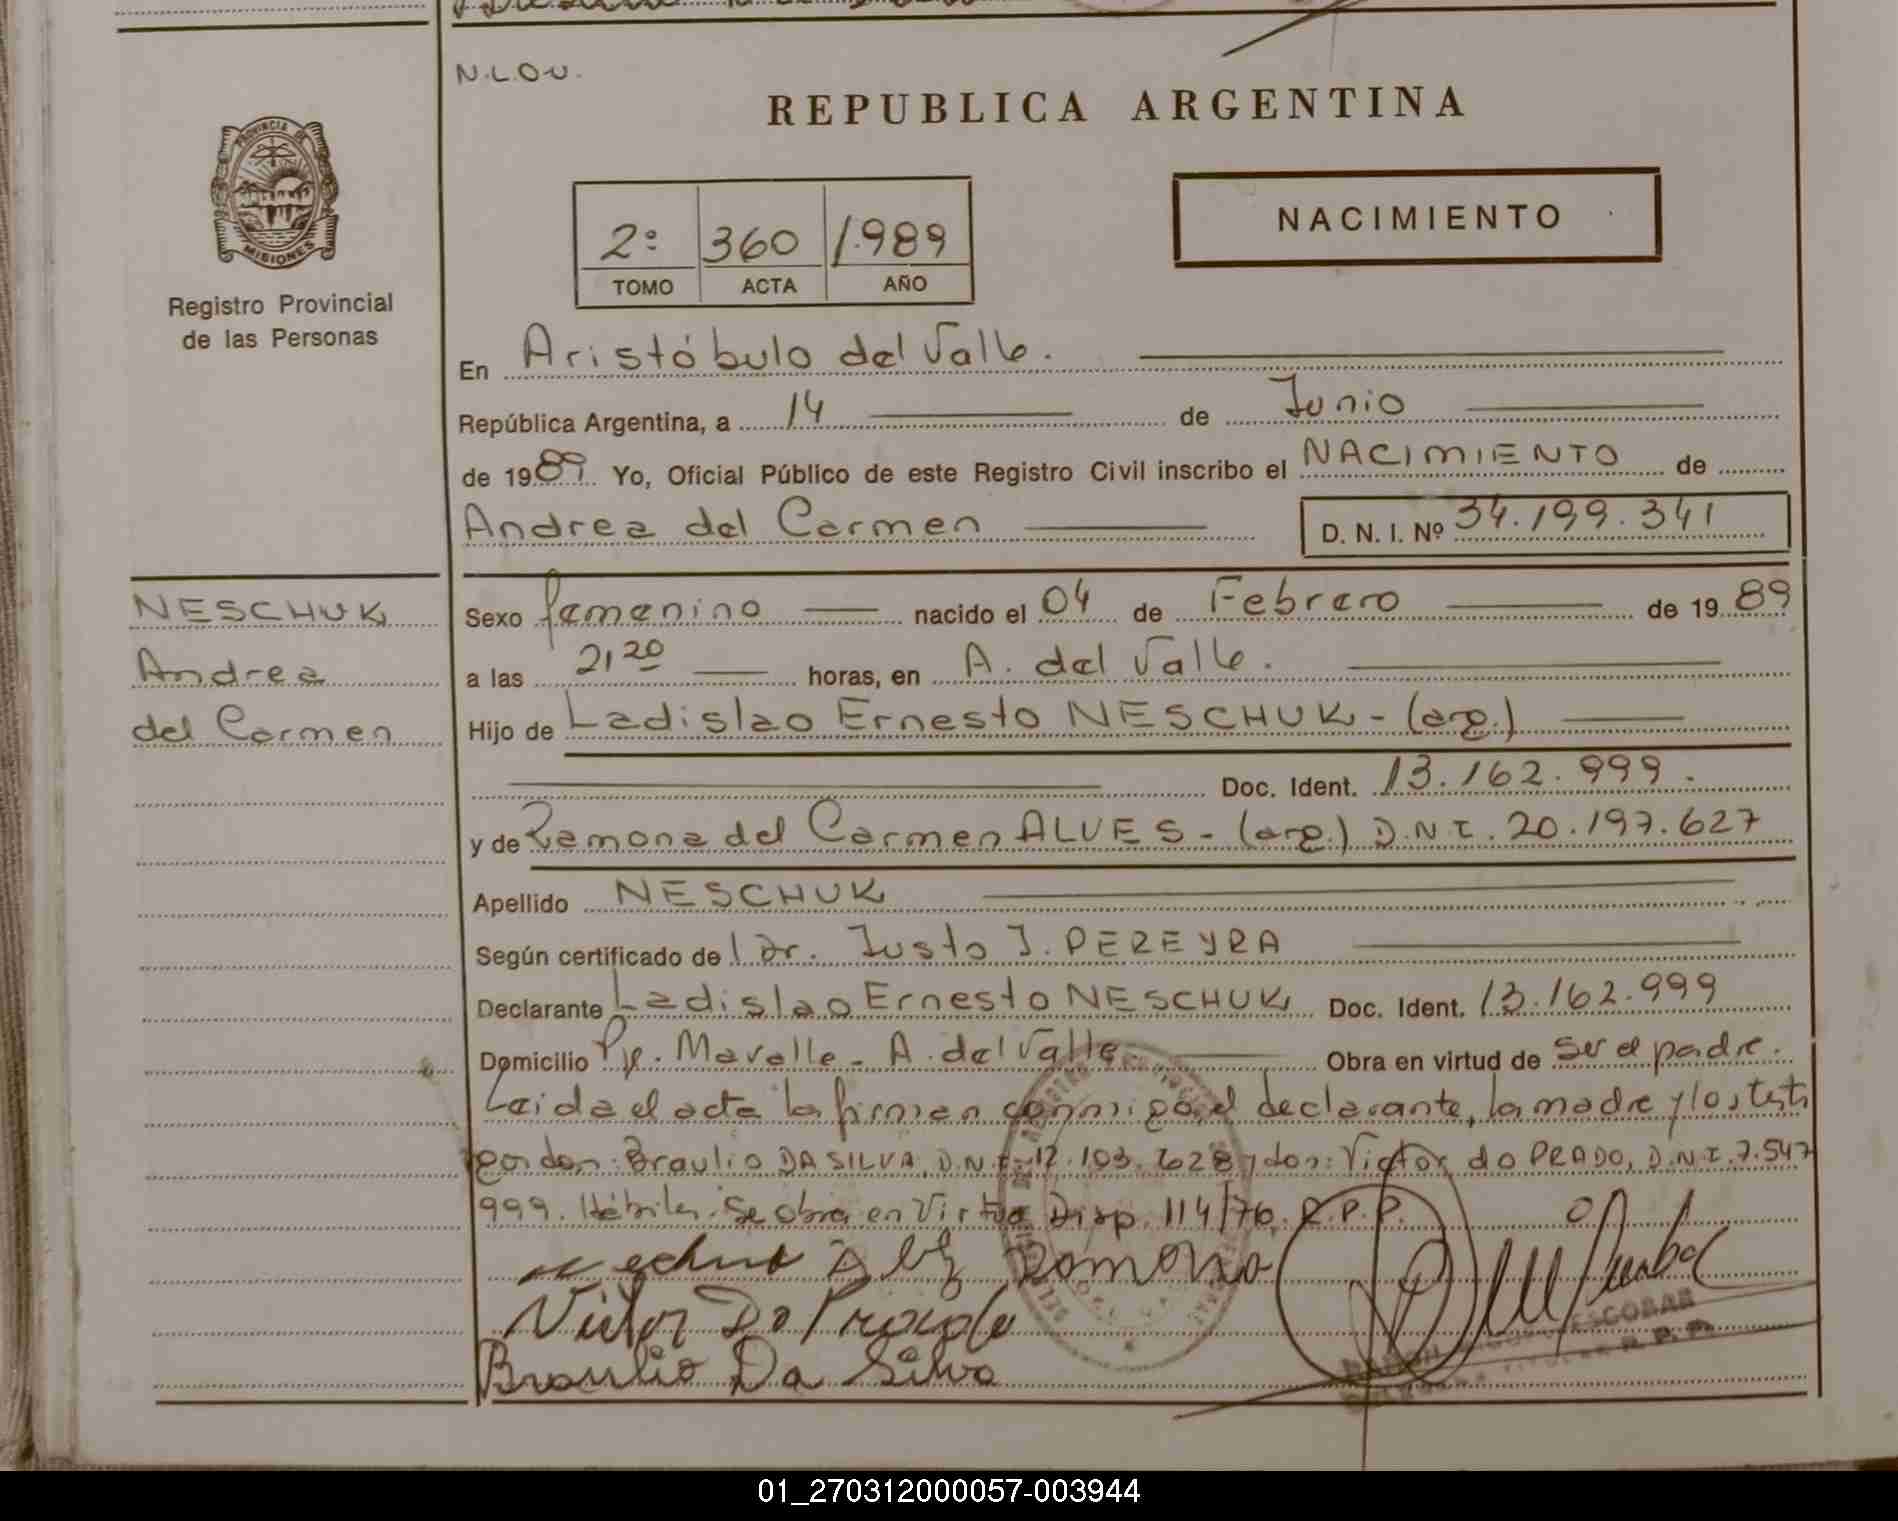 N.L.O.U.
REPUBLICA ARGENTINA
PROVINCIA DE
MISIONES
Registro Provincial
de las Personas
2º 360 1.989
TOMO ACTA AÑO
NACIMIENTO
En Aristóbulo del Valle.
República Argentina, a 14 de Junio
de 1989 Yo, Oficial Público de este Registro Civil inscribo el NACIMIENTO de
Andrea del Carmen D. N. I. Nº 34.199.341
NESCHUK
Andrea
del Carmen
Sexo femenino nacido el 04 de Febrero de 1989
a las 21,20 horas, en A. del Valle.
Hijo de Ladislao Ernesto NESCHUK - (arg.)
Doc. Ident. 13.162.999.
y de Ramona del Carmen ALVES - (arg.) D.N.I. 20.197.627
Apellido NESCHUK
Según certificado de Dr. Justo J. PEREYRA
Declarante Ladislao Ernesto NESCHUK Doc. Ident. 13.162.999
Domicilio Pje. Mavalle - A. del Valle Obra en virtud de ser el padre.
Leida el acta la firman conmigo, el declarante, la madre y los testi
gos don: Braulio DA SILVA, D.N.I. 12.103.628 y don: Victor do PRADO, D.N.I. 7.547
999. Hábiles. Se obra en Virtud Disp. 114/76, R.P.P.
Ramona
Victor Do Prado
Braulio Da Silva
ESCOBAR
R. P. P.
01_270312000057-003944